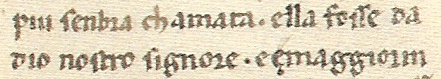 piu senbia chamata. ella fosse da
dio nostro signore. e ęmaggiorm